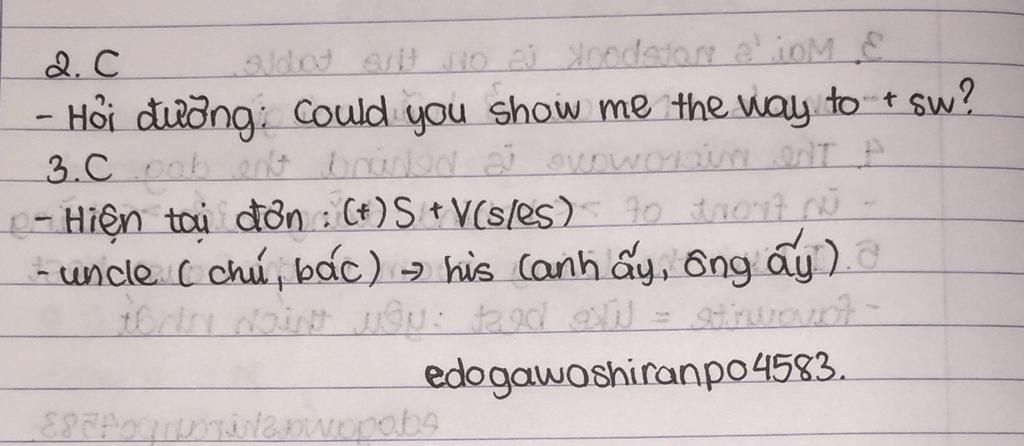 2. C
- Hỏi đường: Could you show me the way to + sw?
3. C
- Hiện tại đơn: (+) S + V(s/es)
- uncle (chú, bác) → his (anh ấy, ông ấy).
edogawashiranpo4583.